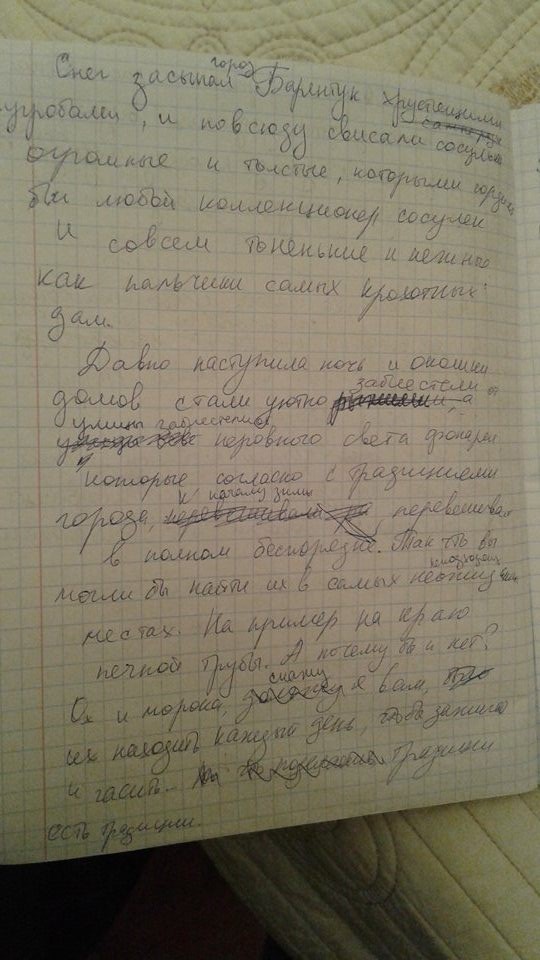 Снег засыпал город Барлтук хрустящими
сугробами, и повсюду свисали сосульки
огромные и толстые, которыми гордился
бы любой коллекционер сосулек
И совсем тоненькие и нежные
как пальчики самых крохотных
дам.
Давно наступила ночь и окошки
домов стали уютно заблестели, а от
улицы заблестели неровного света фонарей
которые согласно с традициями
города, к началу зимы, перевешивал
в полном беспорядке. Так что вы
могли бы найти их в самых неожид
местах. На пример на краю
печной трубы. А почему бы и нет?
Ох и морока, скажу я вам,
их находить каждый день, чтобы зажигать
и гасить. Традиции
есть традиции.